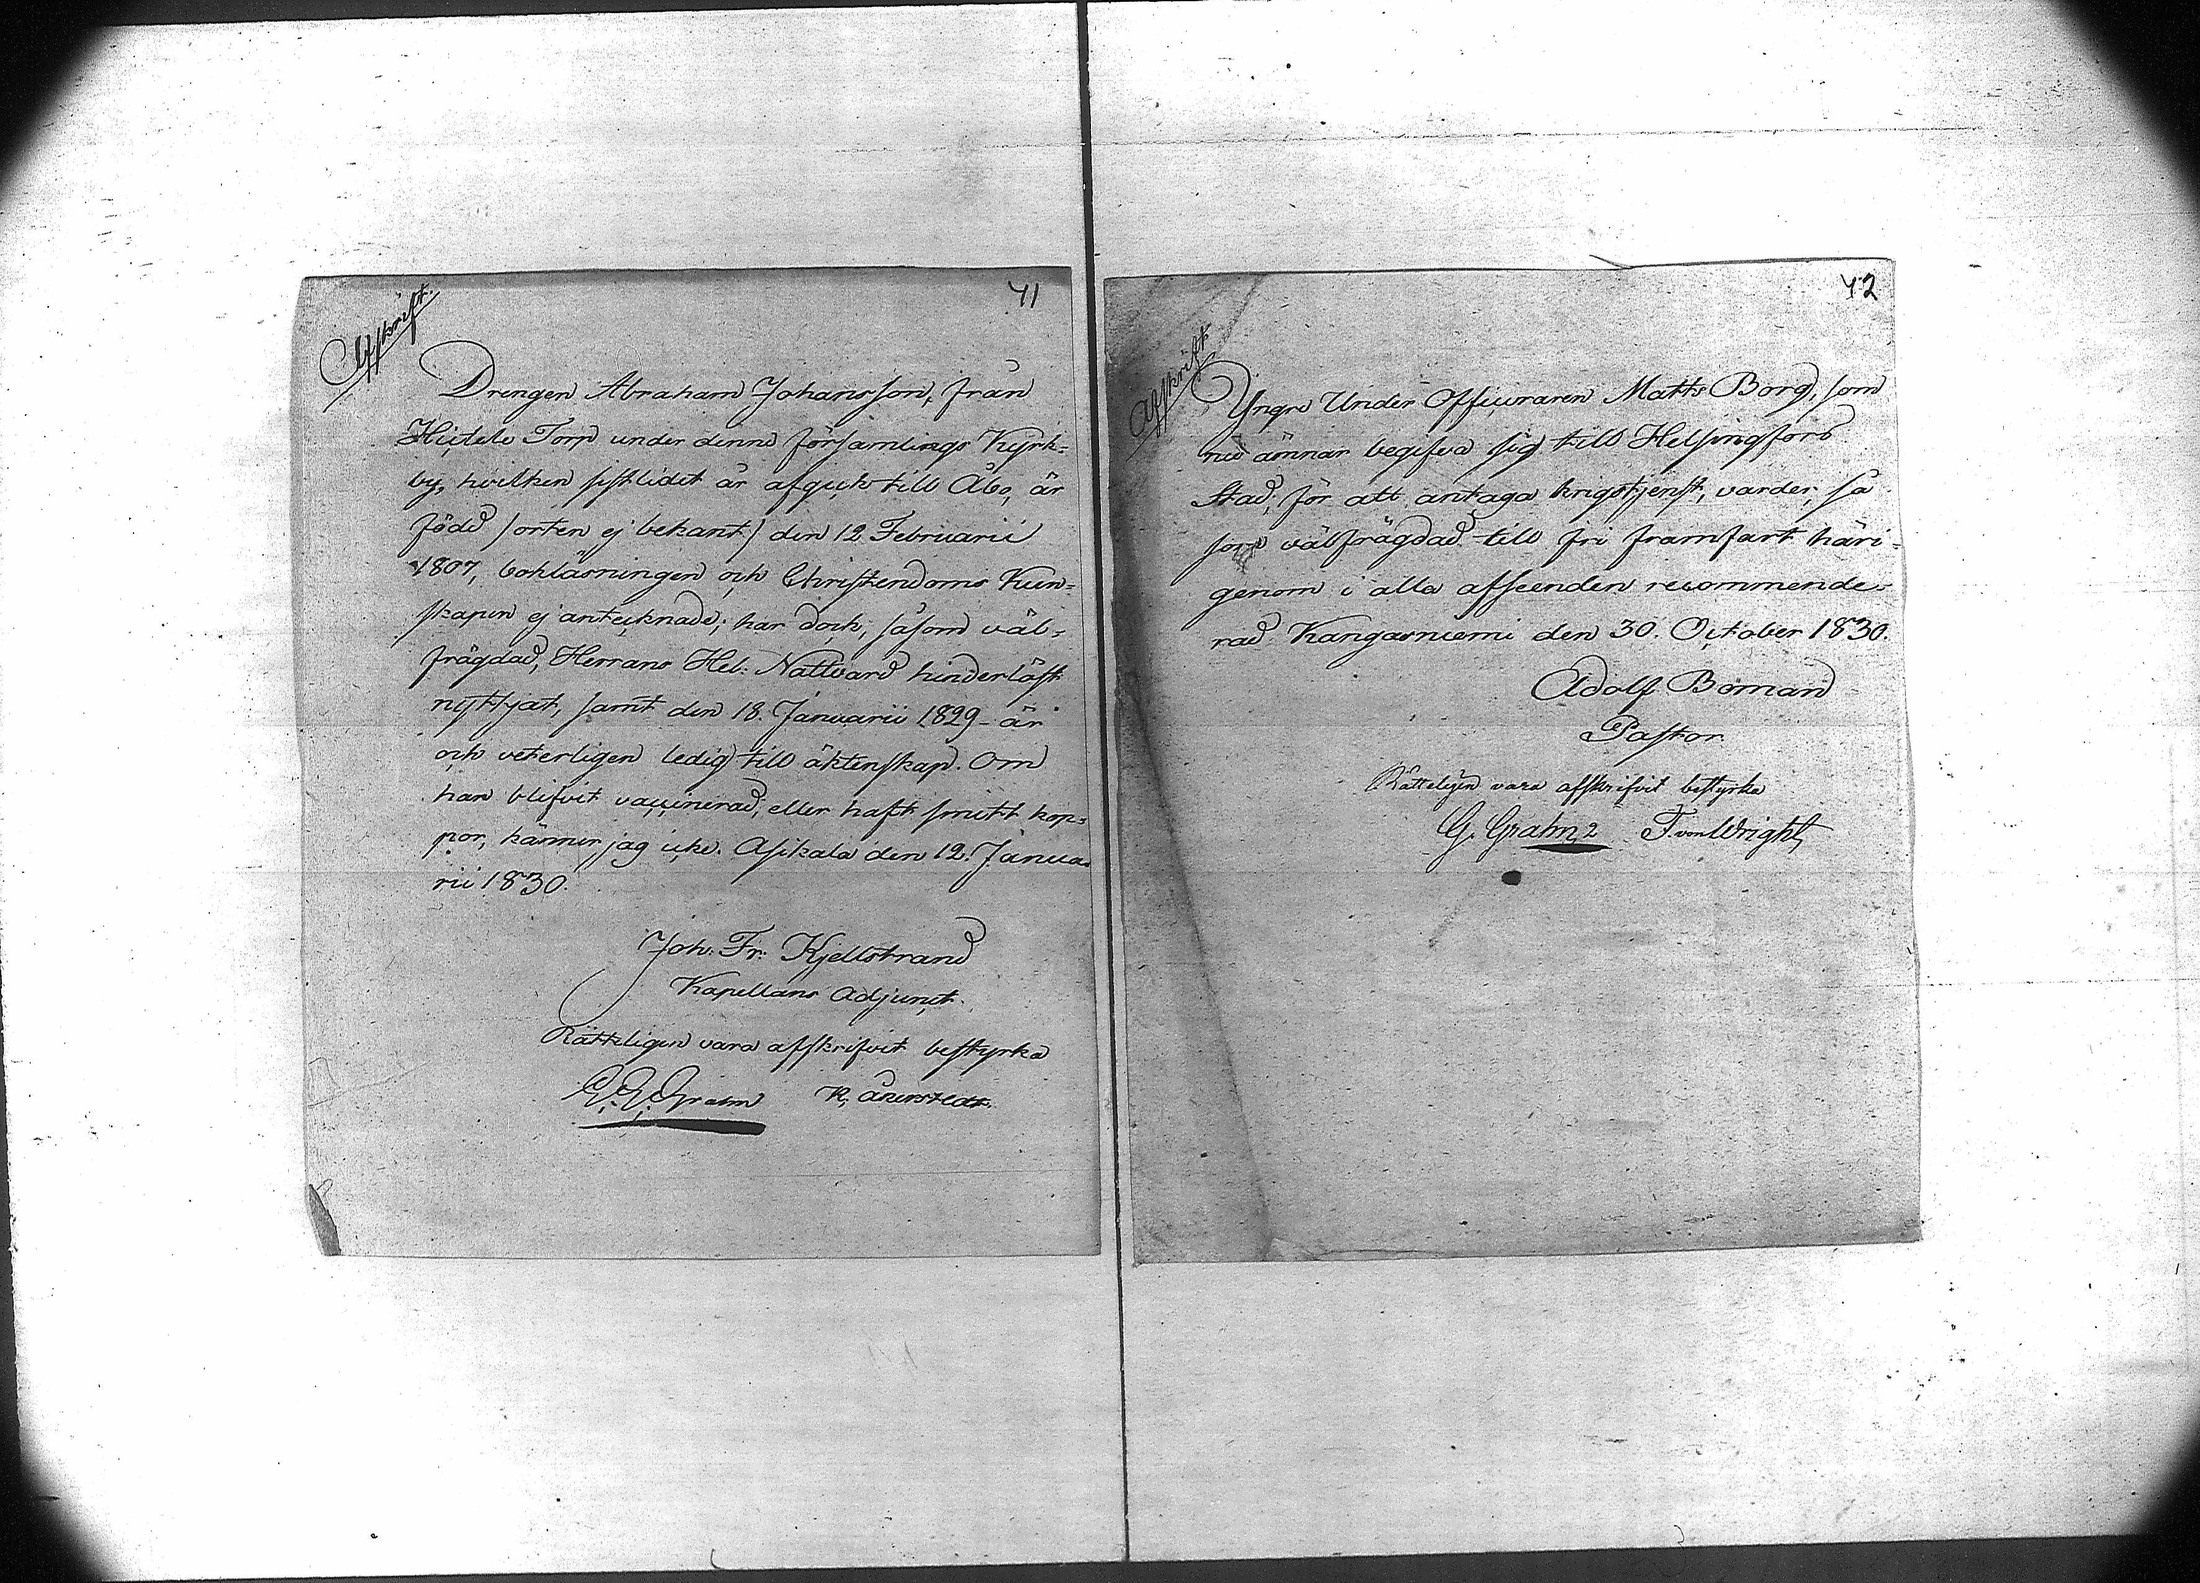 41
Afskrift.
Drengen Abraham Johansson, från
Torp under denne församlings Kyrk=
by, hvilken sistlidit år afgick till Åbo, är
född /orten ej bekant/ den 12 Februarii
1807, bokläsningen och Christendoms Kun=
skapen ej antecknade; har dock, såsom väl=
frägdad, Herrans Hel: Nattvard hinderlöst
nyttjat, samt den 18. Januarii 1829 - är
och veterligen ledig till äktenskap. Om
han blifvit vaccinerad, eller haft smitt kop=
por, känner jag icke. Asikala den 12. Janua=
rii 1830.
Joh: Fr: Kjellstrand
Kapellans Adjunct.
Rätteligen vara afskrifvit bestyrka
G. G. Grahn
42
Afskrift
Yngre Under Officeraren Matts Borg, som
nu ämnar begifva sig till Helsingfors
Stad, för att antaga krigstjenst, varder, så
som välfrägdad till fri framfart häri=
genom i alla afseenden recommende=
rad. Kangasniemi den 30. October 1830.
Adolf Boman
Pastor.
Rätteligen vara afskrifvit bestyrka
G. Grahn 2 F. von Wright